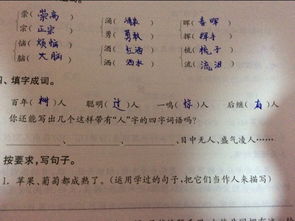 崇(崇高) 涌( ) 晖(春晖)
宗(正宗) 勇(勇敢) 挥(挥手)
恼(烦恼) 酒(红酒) 桃(桃子)
脑(大脑) 洒(洒水) 流(流泪)
四、填字成词。
百年(树)人 聪明(过)人 一鸣(惊)人 后继(有)人
你还能写出几个这样带有“人”字的四字词语吗?
、 、 、目中无人、盛气凌人……
按要求,写句子。
1. 苹果、葡萄都成熟了。(运用学过的句子,把它们当作人来描写)